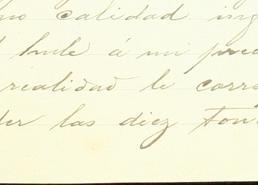 no calidad ing
hule á un prec
realidad le corre
der las diez Ton